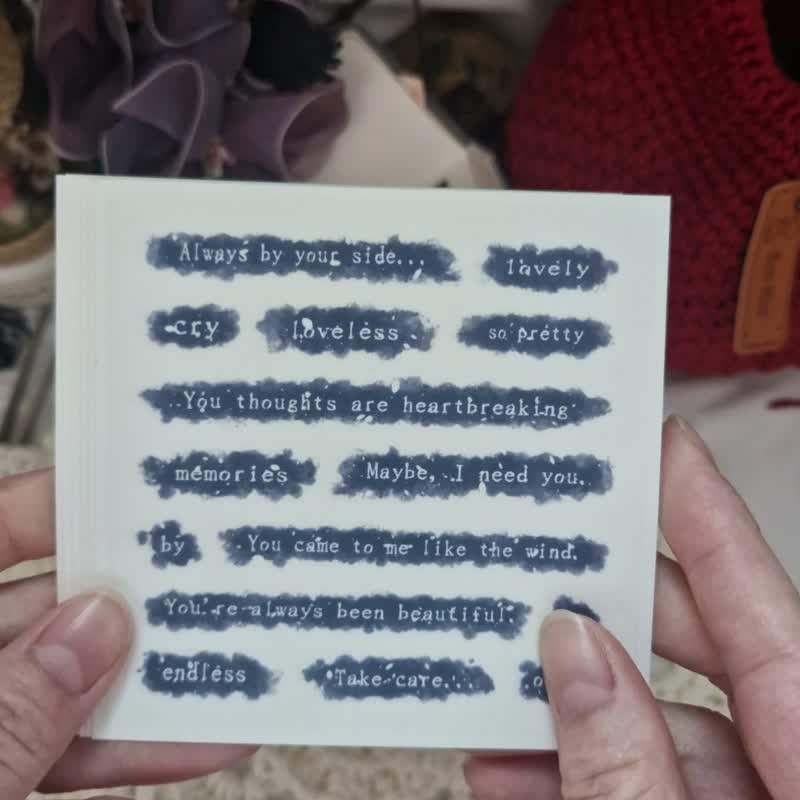 Always by your side...
lavely
cry
loveless
so pretty
You thoughts are heartbreaking
memories
Maybe, I need you.
by
You came to me like the wind.
You're always been beautiful.
endless
Take care...